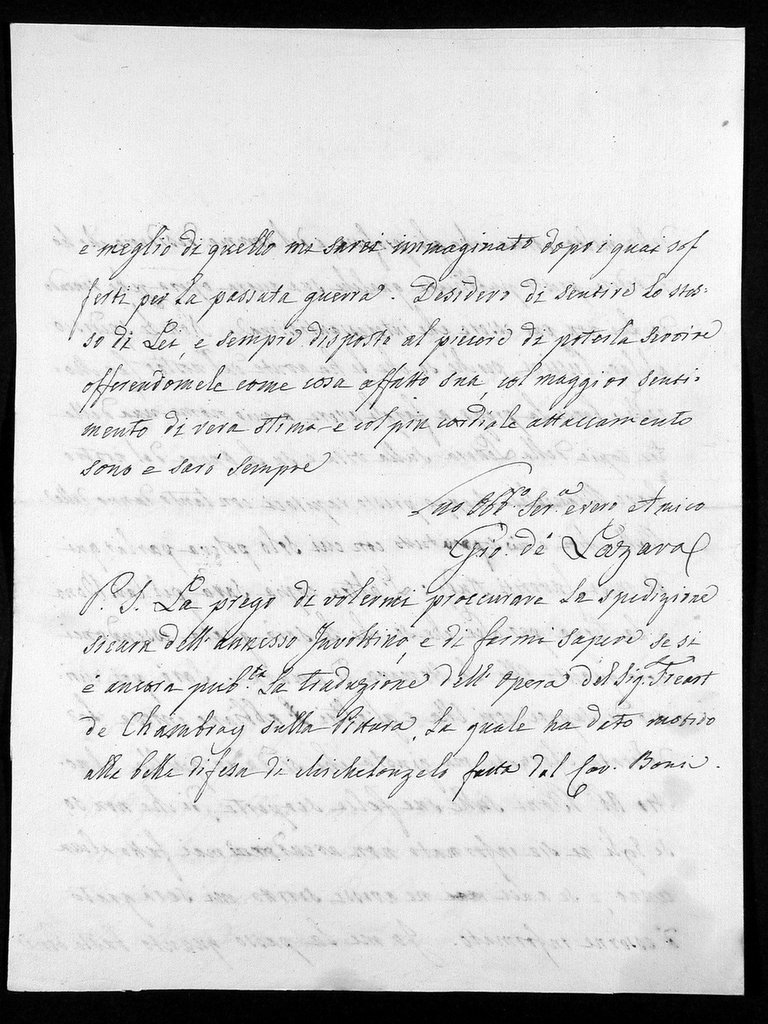 e meglio di quello mi sarei immaginato dopo i guai sof
ferti per la passata guerra. Desidero di sentire lo stes-
so di Lei, e sempre disposto al piecere di poterla servire
offerendomele come cosa affatto sua, col maggior senti-
mento di vera stima e col più cordiale attaccamento
sono e sarò sempre
Suo Obb.º Ser.e e vero Amico
Gio. de Lazara
P. S. La prego di volermi proccurare la spedizione
sicura dell'annesso Involtino, e di farmi sapere se si
è ancora pub.ta la traduzione dell'Opera del Sig.r Freart
de Chambray sulla Pittura, la quale ha dato motivo
alla bella difesa di Michelangelo fatta dal Cav. Boni.